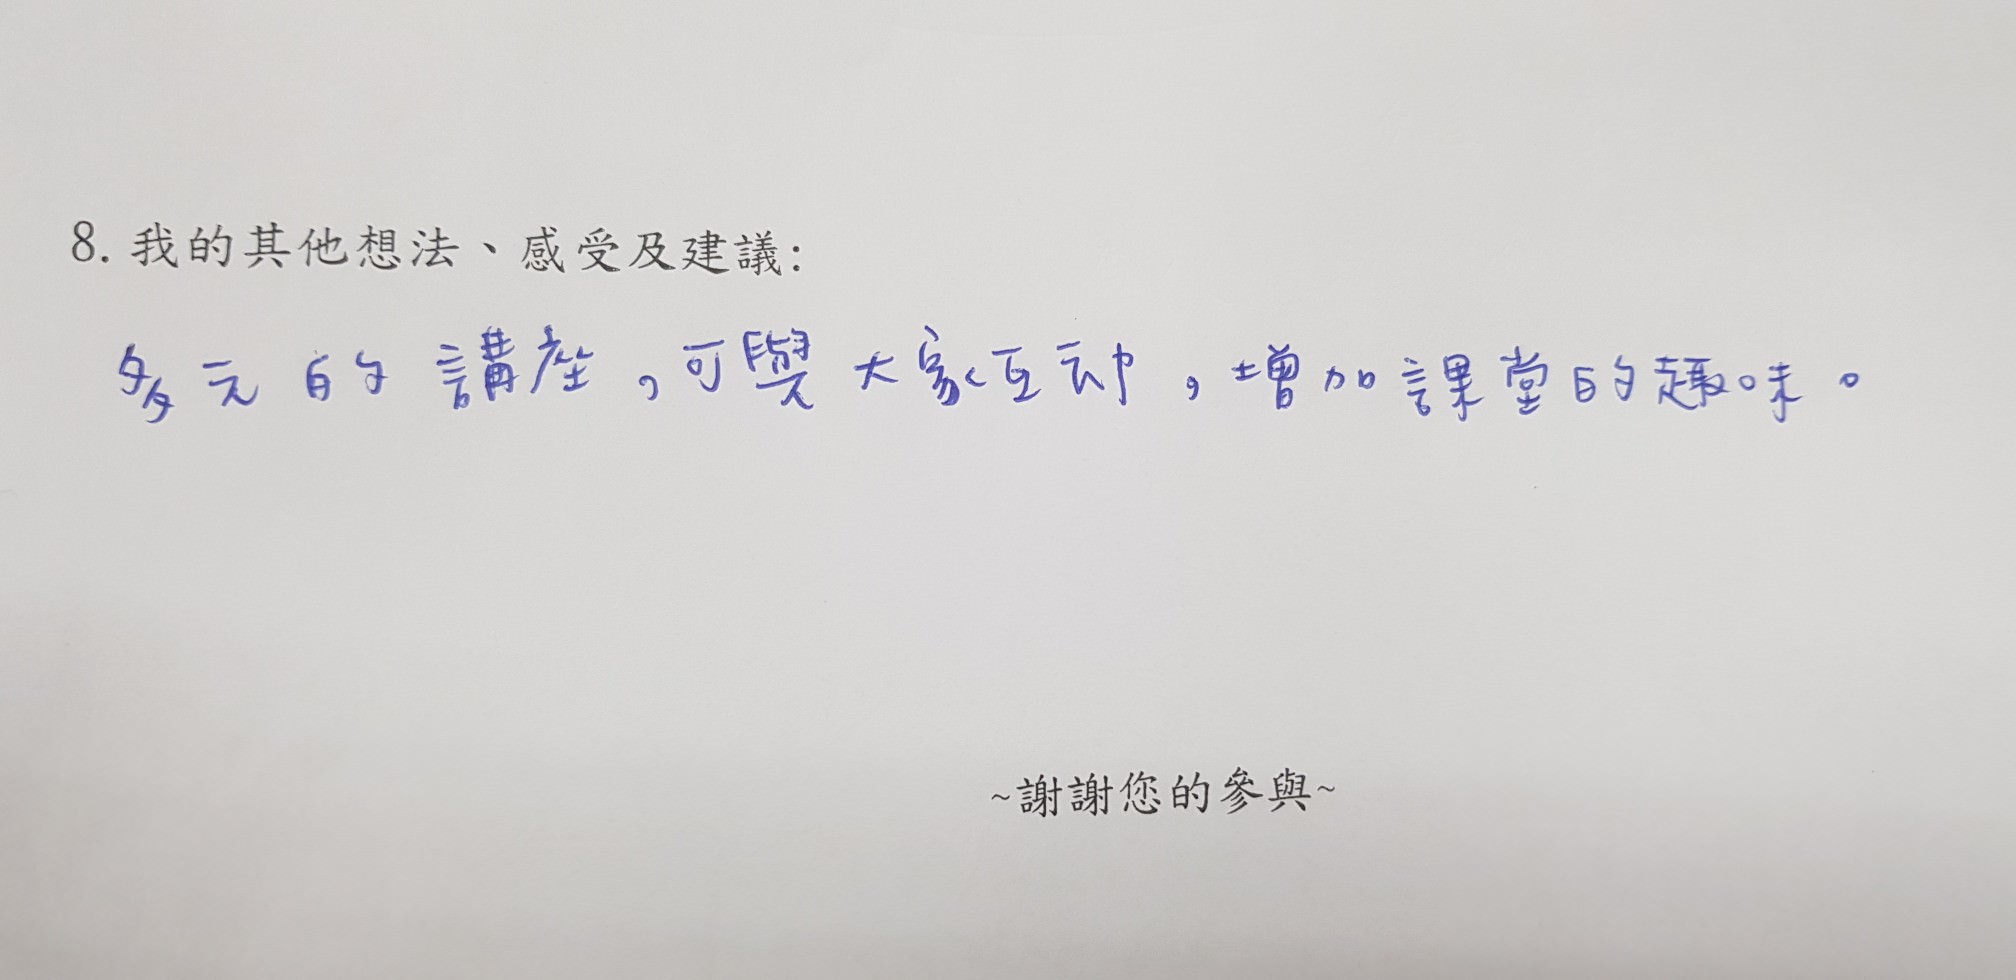 8. 我的其他想法、感受及建議:
多元的講座,可與大家互动,增加課堂的趣味。
~謝謝您的參與~